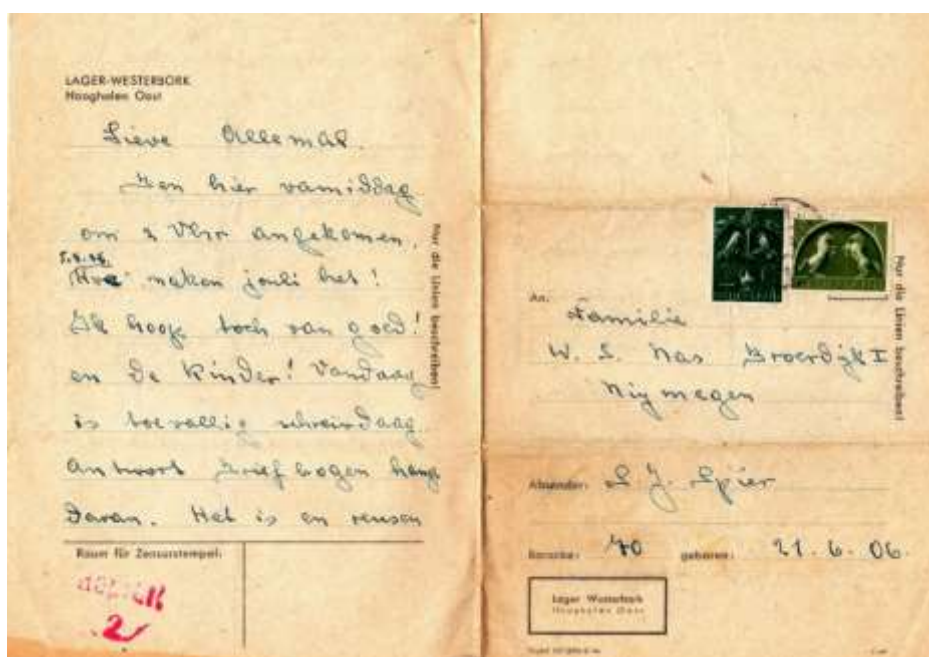 LAGER-WESTERBORK
Hooghalen Oost
Lieve Allemal.
Ben hier vamiddag
om 2 Uhr angekomen.
Hoe maken jouli het!
Ik hoop toch van goed!
en de Kinder! Vandaag
is toevallig schreivdaag
Antwort Brief bogen hang
daran. Het is en reusen
Nur die Linien beschreiben!
Raum für Zensurstempel:
2
Nur die Linien beschreiben!
An:
Familie
W. S. Nas Broerdijk I
Nijmegen
Absender: S. J. Spier
Baracke: 70 geboren: 21. 6. 06.
Lager Westerbork
Hooghalen Oost